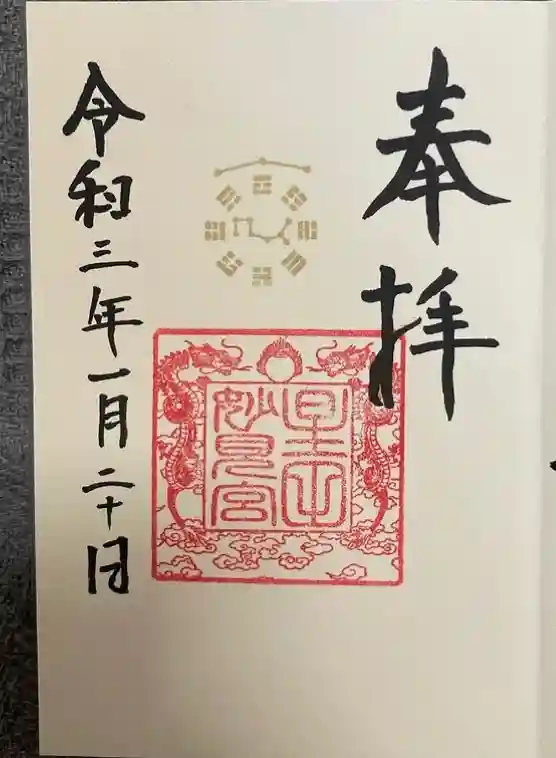 奉拝
妙見宮
令和三年一月二十日